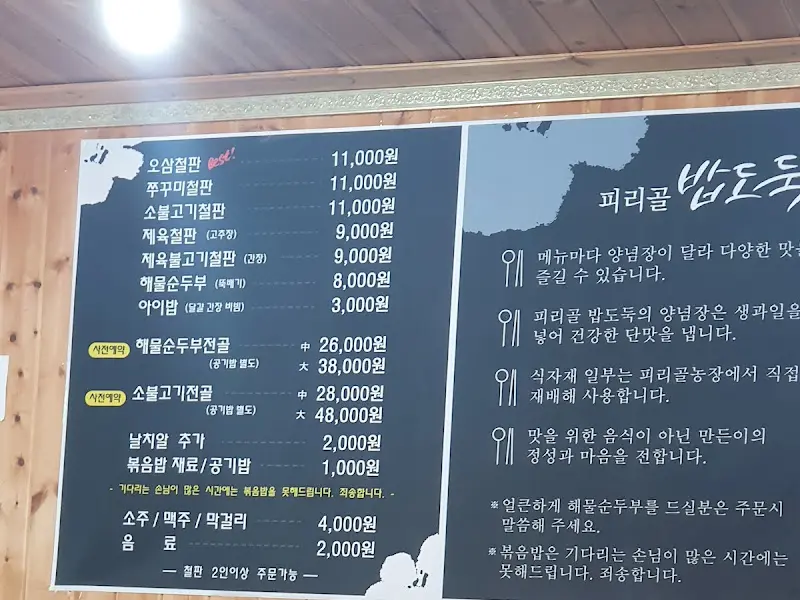 오삼철판 Best! 11,000원
쭈꾸미철판 11,000원
소불고기철판 11,000원
제육철판 (고추장) 9,000원
제육불고기철판 (간장) 9,000원
해물순두부 (뚝배기) 8,000원
아이밥 (달걀 간장 비빔) 3,000원
사전예약 해물순두부전골 中 26,000원
(공기밥 별도) 大 38,000원
사전예약 소불고기전골 中 28,000원
(공기밥 별도) 大 48,000원
날치알 추가 2,000원
볶음밥 재료/공기밥 1,000원
- 기다리는 손님이 많은 시간에는 볶음밥을 못해드립니다. 죄송합니다. -
소주/맥주/막걸리 4,000원
음 료 2,000원
— 철판 2인이상 주문가능 —
피리골 밥도둑
메뉴마다 양념장이 달라 다양한 맛을
즐길 수 있습니다.
피리골 밥도둑의 양념장은 생과일을
넣어 건강한 단맛을 냅니다.
식자재 일부는 피리골농장에서 직접
재배해 사용합니다.
맛을 위한 음식이 아닌 만든이의
정성과 마음을 전합니다.
※얼큰하게 해물순두부를 드실분은 주문시
말씀해 주세요.
※볶음밥은 기다리는 손님이 많은 시간에는
못해드립니다. 죄송합니다.